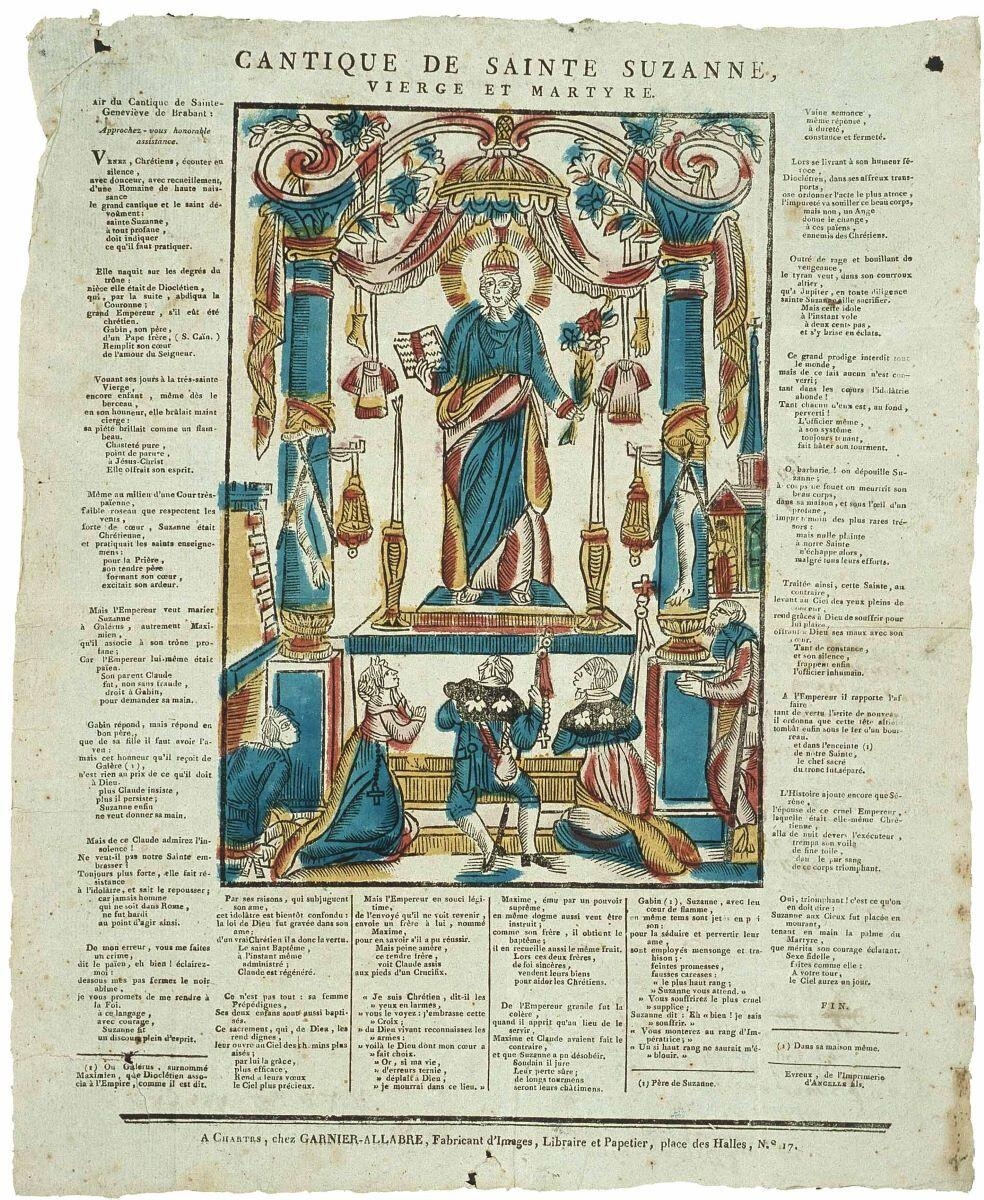 CANTIQUE DE SAINTE SUZANNE,
VIERGE ET MARTYRE.
Air du Cantique de Sainte-
Geneviève de Brabant :
Approchez-vous honorable
assistance.
VENEZ, Chrétiens, écouter en
silence,
avec douceur, avec recueillement,
d'une Romaine de haute nais-
sance
le grand cantique et le saint dé-
voûment :
sainte Suzanne,
à tout profane,
doit indiquer
ce qu'il faut pratiquer.
Elle naquit sur les degrés du
trône :
nièce elle était de Dioclétien,
qui, par la suite, abdiqua la
Couronne ;
grand Empereur, s'il eût été
chrétien.
Gabin, son père,
d'un Pape frère, (S. Caïn.)
Remplit son cœur
de l'amour du Seigneur.
Vouant ses jours à la très-sainte
Vierge,
encore enfant, même dès le
berceau,
en son honneur, elle brûlait maint
cierge :
sa piété brillait comme un flam-
beau.
Chasteté pure,
point de parure,
à Jésus-Christ
Elle offrait son esprit.
Même au milieu d'une Cour très-
païenne,
faible roseau que respectent les
vents,
forte de cœur, Suzanne était
Chrétienne,
et pratiquait les saints enseigne-
mens :
pour la Prière,
son tendre père
formant son cœur,
excitait son ardeur.
Mais l'Empereur veut marier
Suzanne
à Galérus, autrement Maxi-
mien,
qu'il associe à son trône pro-
fane ;
Car l'Empereur lui-même était
païen.
Son parent Claude
fut, non sans fraude,
droit à Gabin,
pour demander sa main.
Gabin répond, mais répond en
bon père,
que de sa fille il faut avoir l'a-
veu :
mais cet honneur qu'il reçoit de
Galère (1),
n'est rien au prix de ce qu'il doit
à Dieu.
plus Claude insiste,
plus il persiste ;
Suzanne enfin
ne veut donner sa main.
Mais de ce Claude admirez l'in-
solence !
Ne veut-il pas notre Sainte em-
brasser !
Toujours plus forte, elle fait ré-
sistance
à l'idolâtre, et sait le repousser ;
car jamais homme
qui ne soit dans Rome,
ne fut hardi
au point d'agir ainsi.
De mon erreur, vous me faites
un crime,
dit le païen, eh bien ! éclairez-
moi :
dessous mes pas fermes le noir
abîme,
je vous promets de me rendre à
la Foi.
à ce langage,
avec courage,
Suzanne fit
un discours plein d'esprit.
(1) Ou Galérus, surnommé
Maximien, que Dioclétien asso-
cia à l'Empire, comme il est dit.
Par ses raisons, qui subjuguent
son ame,
cet idolâtre est bientôt confondu :
la loi de Dieu fut gravée dans son
ame ;
d'un vrai Chrétien il a donc la vertu.
Le Baptême,
à l'instant même
administré ;
Claude est régénéré.
Ce n'est pas tout : sa femme
Prépédignes,
Ses deux enfans sont aussi bapti-
sés.
Ce sacrement, qui, de Dieu, les
rend dignes,
leur ouvre au Ciel des chemins plus
aisés ;
par lui la grâce,
plus efficace,
Rend à leurs vœux
le Ciel plus précieux.
Mais l'Empereur en souci légi-
time,
de l'envoyé qu'il ne voit revenir,
envoie un frère à lui, nommé
Maxime,
pour en savoir s'il a pu réussir.
Mais peine amère,
ce tendre frère,
voit Claude assis
aux pieds d'un Crucifix.
« Je suis Chrétien, dit-il les
» yeux en larmes,
» vous le voyez : j'embrasse cette
» Croix ;
» du Dieu vivant reconnaissez les
» armes :
» voilà le Dieu dont mon cœur a
» fait choix.
» Or, si ma vie,
» d'erreurs ternie,
» déplaît à Dieu,
» je mourrai dans ce lieu. »
Maxime, ému par un pouvoir
suprême,
en même dogme aussi veut être
instruit ;
comme son frère, il obtient le
baptême ;
il en recueille aussi le même fruit.
Lors ces deux frères,
de foi sincères,
vendent leurs biens
pour aider les Chrétiens.
De l'Empereur grande fut la
colère,
quand il apprit qu'au lieu de le
servir,
Maxime et Claude avaient fait le
contraire,
et que Suzanne a pu désobéir.
Soudain il jure
Leur perte sûre ;
de longs tourmens
seront leurs châtimens.
Gabin (1), Suzanne, avec leu
cœur de flamme,
en même tems sont jetés en pri
son :
pour la séduire et pervertir leur
ame,
sont employés mensonge et tra-
hison ;
feintes promesses,
fausses caresses :
« le plus haut rang ;
» Suzanne vous attend. »
» Vous souffrirez le plus cruel
» supplice ;
Suzanne dit : Eh « bien ! je sais
» souffrir. »
« Vous monterez au rang d'Im-
» pératrice ; »
« Un si haut rang ne saurait m'é-
» blouir. »
(1) Père de Suzanne.
Vaine semonce,
même réponse,
à dureté,
constance et fermeté.
Lors se livrant à son humeur fé-
roce,
Dioclétien, dans ses affreux trans-
ports,
ose ordonner l'acte le plus atroce,
l'impureté va souiller ce beau corps,
mais non, un Ange
donne le change,
à ces païens,
ennemis des Chrétiens.
Outré de rage et bouillant de
vengeance,
le tyran veut, dans son courroux
altier,
qu'à Jupiter, en toute diligence
sainte Suzanne aille sacrifier.
Mais cette idole
à l'instant vole
à deux cents pas,
et s'y brise en éclats.
Ce grand prodige interdit tout
le monde,
mais de ce fait aucun n'est con-
verti ;
tant dans les cœurs l'idolâtrie
abonde !
Tant chacun d'eux est, au fond,
perverti !
L'officier même,
à son système
toujours tenant,
fait hâter son tourment.
O barbarie ! on dépouille Su-
zanne ;
à coups de fouet on meurtrit son
beau corps,
dans sa maison, et sous l'œil d'un
profane,
impur témoin des plus rares tré-
sors :
mais nulle plainte
à notre Sainte
n'échappe alors,
malgré tous leurs efforts.
Traitée ainsi, cette Sainte, au
contraire,
levant au Ciel des yeux pleins de
douceur,
rend grâces à Dieu de souffrir pour
lui plaire,
offrant à Dieu ses maux avec son
cœur.
Tant de constance,
et son silence,
frappent enfin
l'officier inhumain.
A l'Empereur il rapporte l'af
faire
tant de vertu l'irrite de nouveau
il ordonna que cette tête altière
tombât enfin sous le fer d'un bour-
reau.
et dans l'enceinte (1)
de notre Sainte,
le chef sacré
du tronc fut séparé.
L'Histoire ajoute encore que Sé-
rène,
l'épouse de ce cruel Empereur,
laquelle était elle-même Chré-
tienne,
alla de nuit devers l'exécuteur,
trempa son voile
de fine toile,
dans le pur sang
de ce corps triomphant.
Oui, triomphant ! c'est ce qu'on
en doit dire ;
Suzanne aux Cieux fut placée en
mourant,
tenant en main la palme du
Martyre,
que mérita son courage éclatant.
Sexe fidelle,
faites comme elle :
A votre tour,
le Ciel aurez un jour.
FIN.
(1) Dans sa maison même.
Evreux, de l'Imprimerie
d'ANCELLE fils.
A CHARTRES, chez GARNIER-ALLABRE, Fabricant d'Images, Libraire et Papetier, place des Halles, N.º 17.